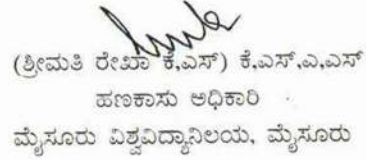 (ಶ್ರೀಮತಿ ರೇಖಾ ಕೆ,ಎಸ್) ಕೆ,ಎಸ್,ಎ,ಎಸ್
ಹಣಕಾಸು ಅಧಿಕಾರಿ
ಮೈಸೂರು ವಿಶ್ವವಿದ್ಯಾನಿಲಯ, ಮೈಸೂರು